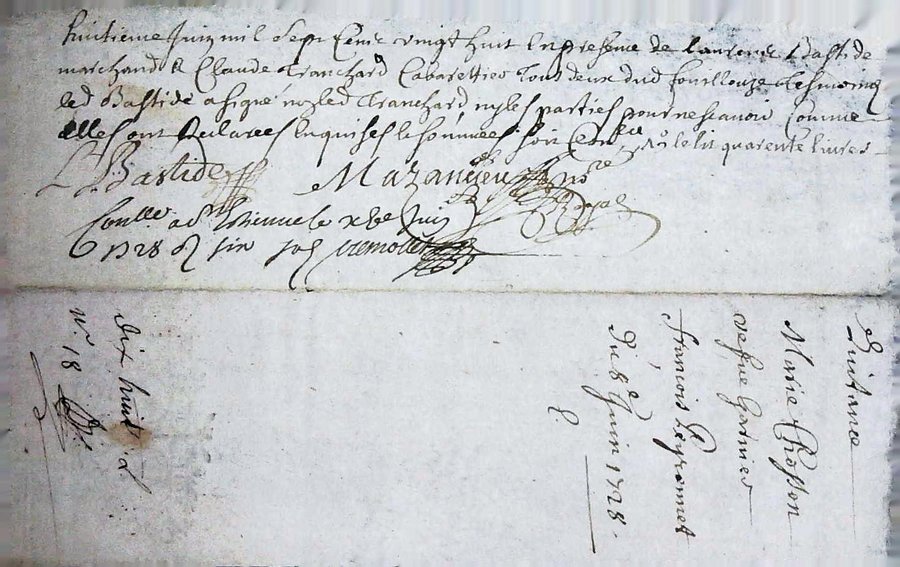 huitieme Juin mil Sept Cens vingt huit En presense de Laurens Bastide
marchand & Claude Tranchard Cabarettier Tous deux dud fouillouze Tesmoins
led Bastide a signé no led Tranchard ny les parties pour ne scavoir comme
elles ont declarées Enquises et sommées soit Con.lle quarente livres
LBastide Mazancieu no.re Royal
Con.lle a St Estienne le Juin
1728 six
Quitance
Marie Chosson
vefve Garnier
françois Peyronnet
Du 8e Juin 1728
dix huit
n° 18